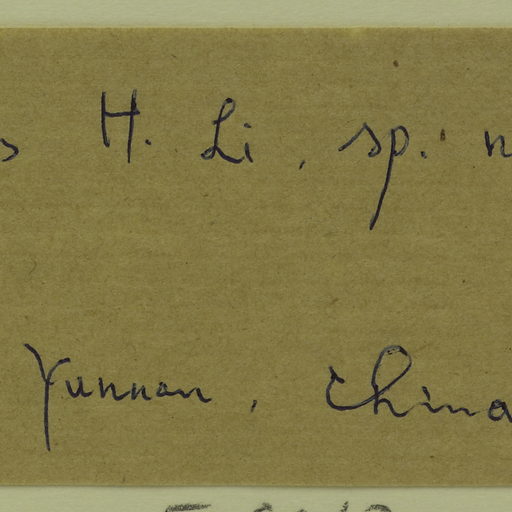 H. Li, sp.
Yunnan, China